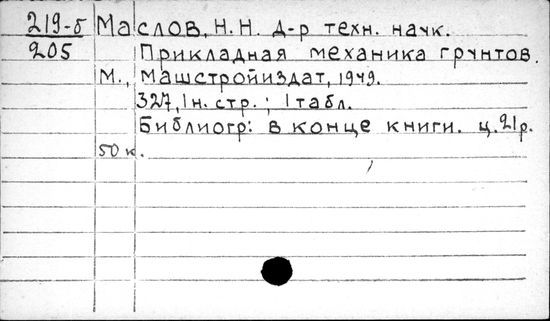 219-б Маслов, Н.Н. д-р техн. наук.
205 Прикладная механика грунтов.
М., Машстройиздат, 1949.
327, 1 н. стр.; 1 табл.
Библиогр: в конце книги. ц. 21 р.
50 к.